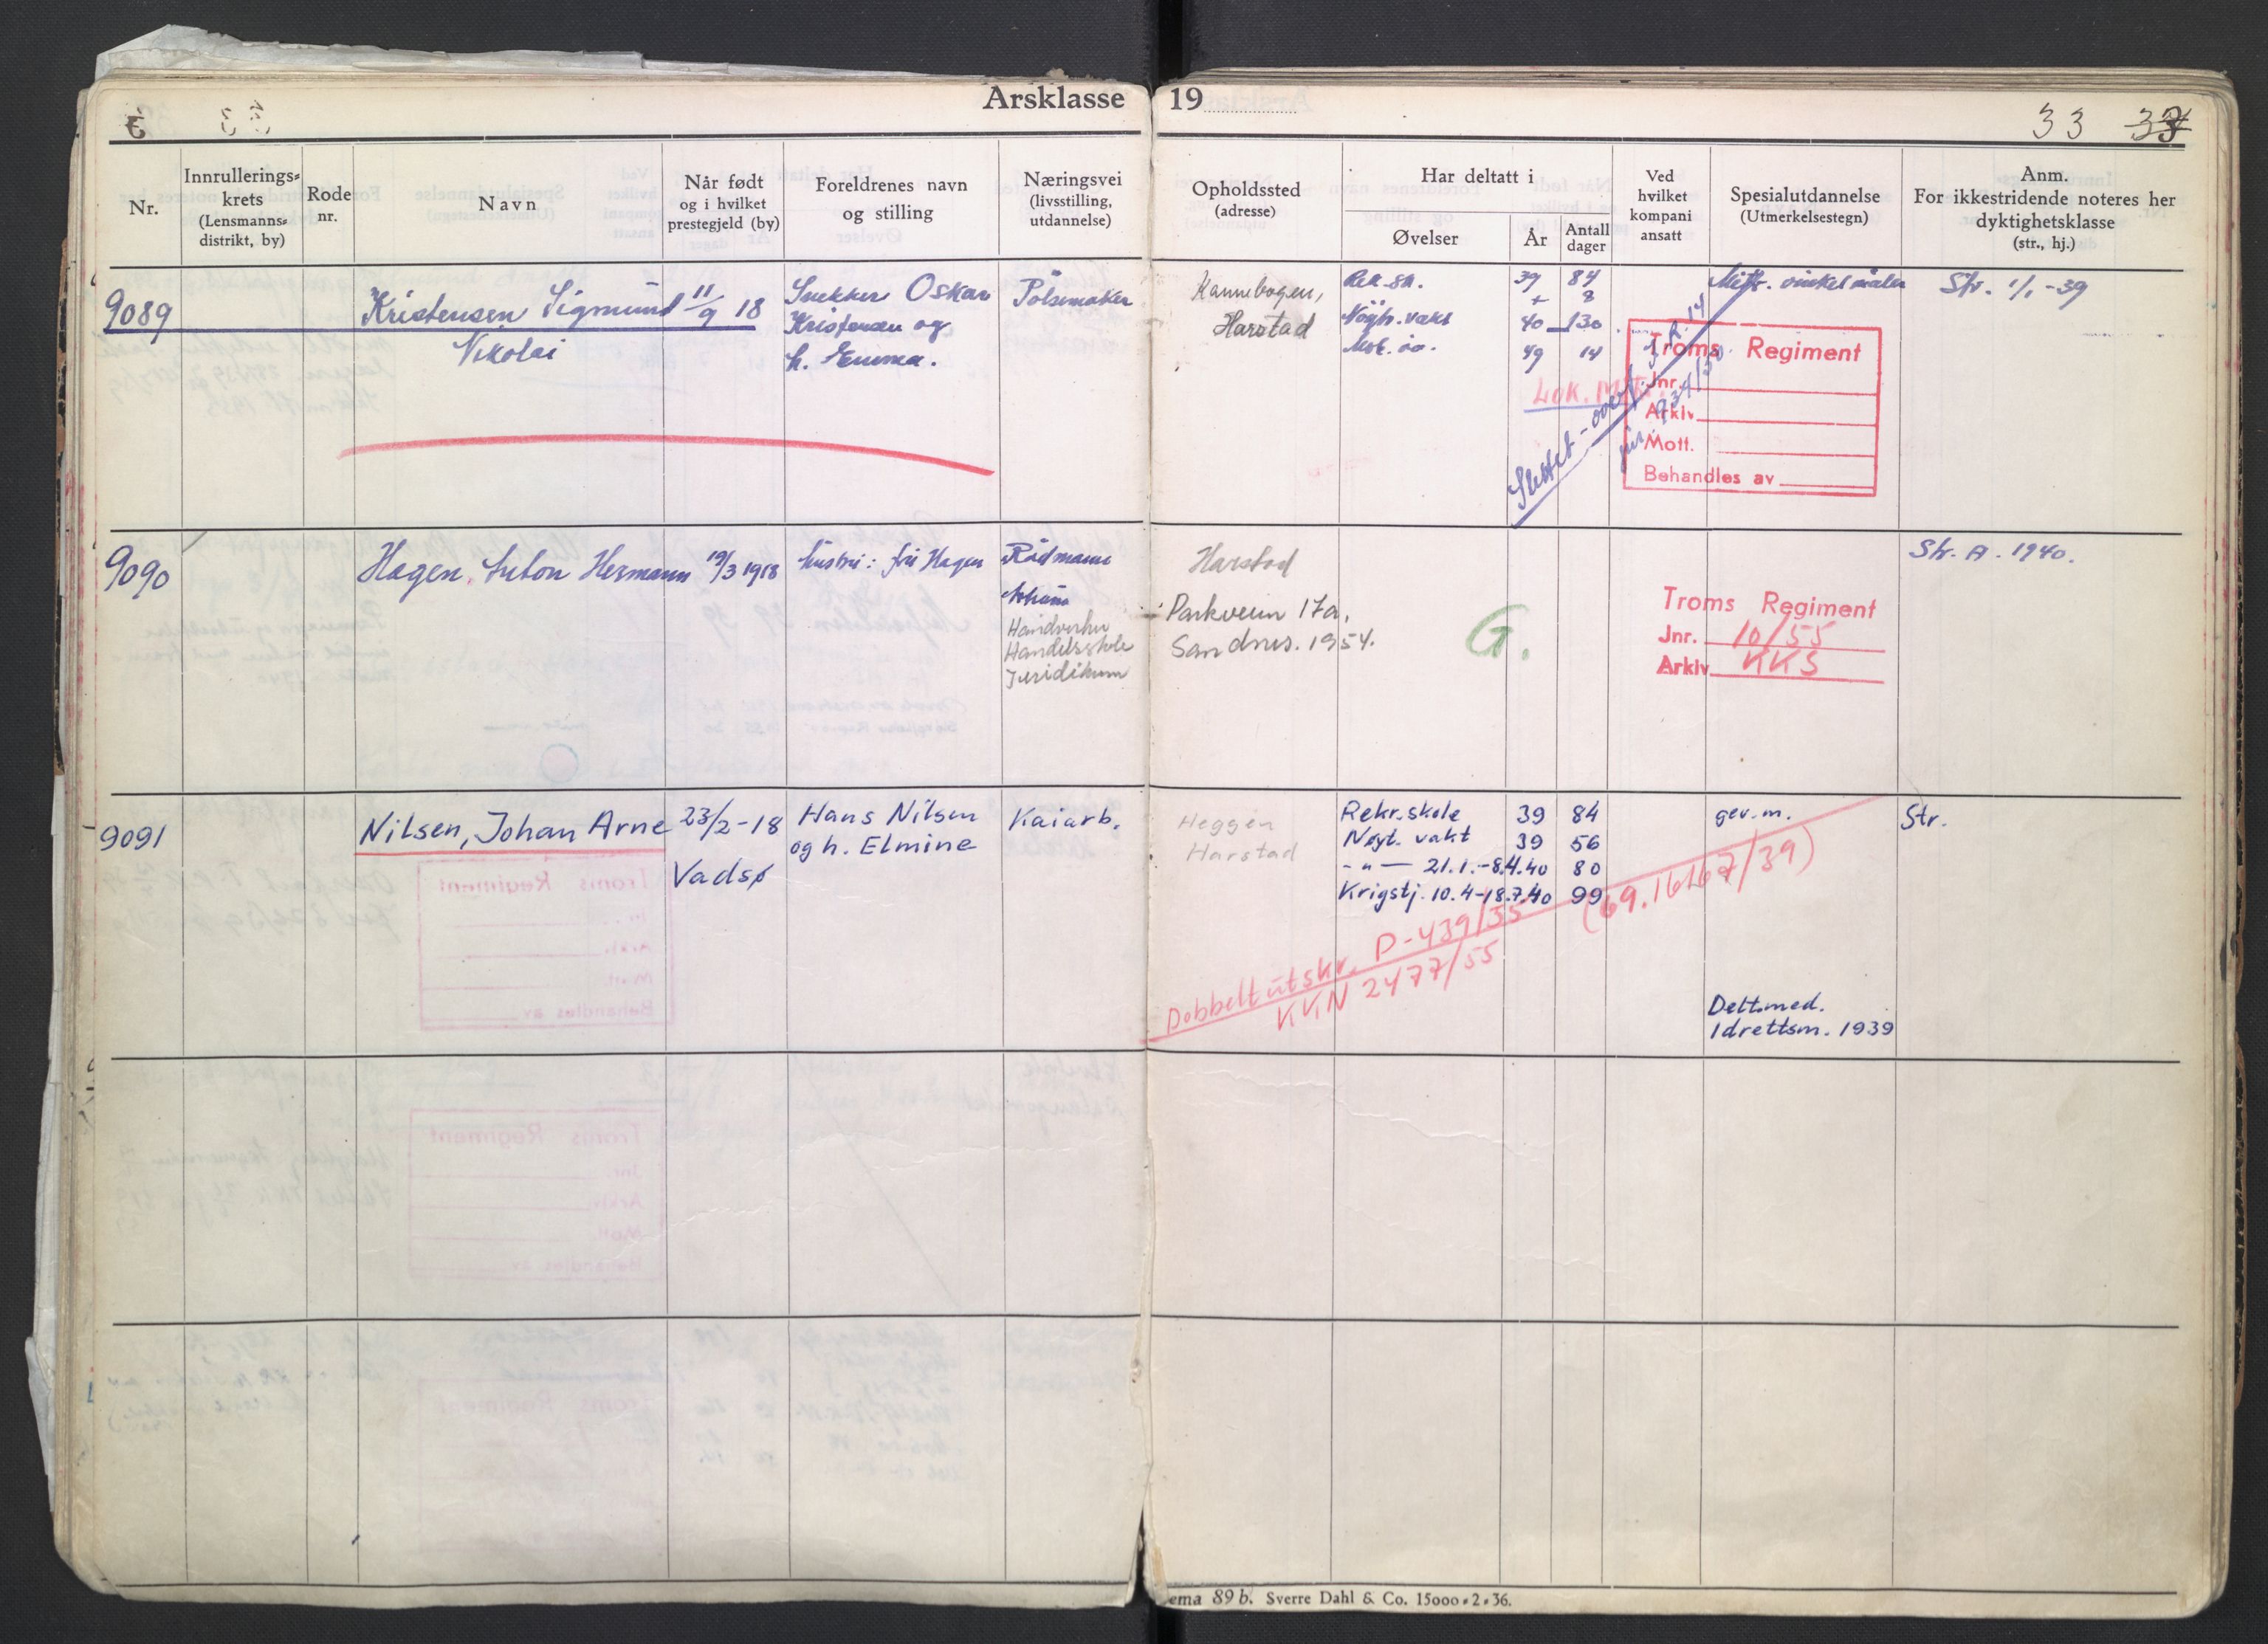 Årsklasse 19
33
Nr.
Innrullerings-
krets
(Lensmanns-
distrikt, by)
Rode
nr.
Navn
Når født
og i hvilket
prestegjeld (by)
Foreldrenes navn
og stilling
Næringsvei
(livsstilling,
utdannelse)
Opholdssted
(adresse)
Har deltatt i
Øvelser
År
Antall
dager
Ved
hvilket
kompani
ansatt
Spesialutdannelse
(Utmerkelsestegn)
Anm.
For ikkestridende noteres her
dyktighetsklasse
(str., hj.)
9089
Kristensen Sigmund
Nikolai
11/9 18
Snekker Oskar
Kristensen og
h. Emma.
Pölsemaker
Kannebogen,
Harstad
Rek.sk. 39 84
+ 8
Nögtr.vakt 40 130
49 14
Lok.
Slettet - overf. J.R. 14
Mitr. vinkelmåler
Str. 1/1 - 39
Troms Regiment
Jnr.
Arkiv
Mott.
Behandles av
9090
Hagen, Anton Hermann
19/3 1918
Hustru: fru Hagen
Rådmann
Handelsskole
Juridikum
Harstad
Parkveien 17a.
Sandnes. 1954.
G.
Troms Regiment
Jnr. 10/55
Arkiv KKS
Str. A. 1940.
9091
Nilsen, Johan Arne
23/2-18
Vadsø
Hans Nilsen
og h. Elmine
Kaiarb.
Heggen
Harstad
Rekr.skole 39 84
Nøyt. vakt 39 56
-"- 21.1.-8.4.40 80
Krigstj. 10.4-18.7.40 99
gev.m.
Str.
(69.16167/39)
Dobbelt utskr. P-439/55
KKN 2477/55
Delt.med.
Idrettsm. 1939
ema 89 b. Sverre Dahl & Co. 15000-2-36.